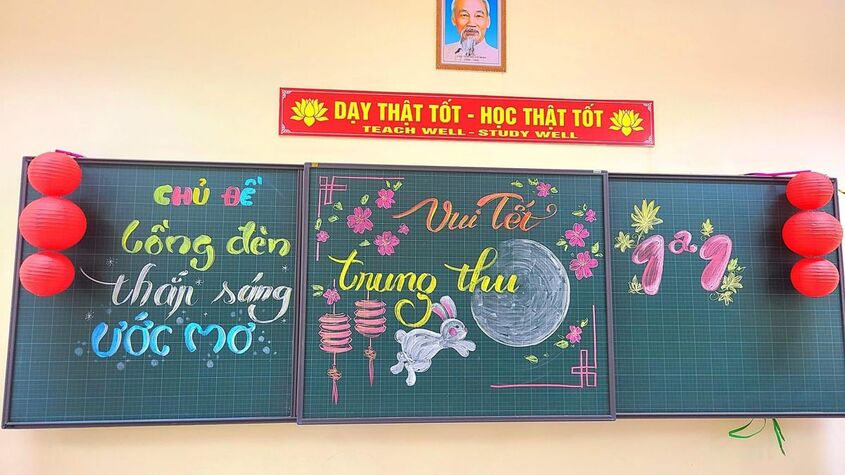 DẠY THẬT TỐT - HỌC THẬT TỐT
TEACH WELL - STUDY WELL
CHỦ ĐỀ
Lồng đèn
thắp sáng
ƯỚC MƠ
Vui Tết
trung thu
1a1